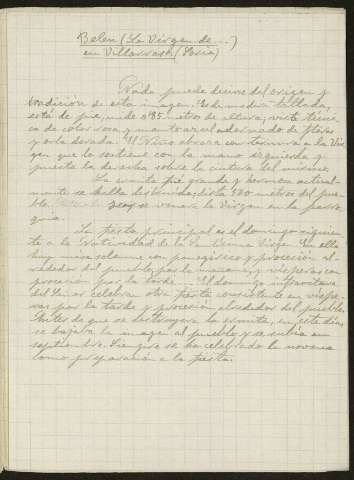 Belén (La Virgen de ...)
en Villarrasa. (Soria)
Nada puede decirse del origen y
tradición de esta imagen. Es de madera tallada,
está de pie, mide 0'85 metro de altura, viste túnica
de color rosa y manto azul adornado de flores
y orla dorada. El Niño abraza con ternura a la Vir
gen que lo sostiene con la mano izquierda y
puesta la derecha sobre la cintura del mismo.
La ermita fué grande y hermosa actual-
mente se halla destruida, dista 500 metros del pue
blo. y se venera la Virgen en la parro
quia.
La fiesta principal es el domingo siguien
te a la Natividad de la Sma Virgen. En ella
hay misa solemne con panegírico y procesión al-
rededor del pueblo, por la mañana, y vísperas con
procesión por la tarde. El domingo infraoctava
del Señor celebran otra fiesta consistente en víspe-
ras por la tarde y procesión alrededor del pueblo.
Antes de que se destruyera la ermita, en este día,
se bajaba la imagen al pueblo y se subía en
septiembre. Siempre se ha celebrado la novena
como preparación a la fiesta.